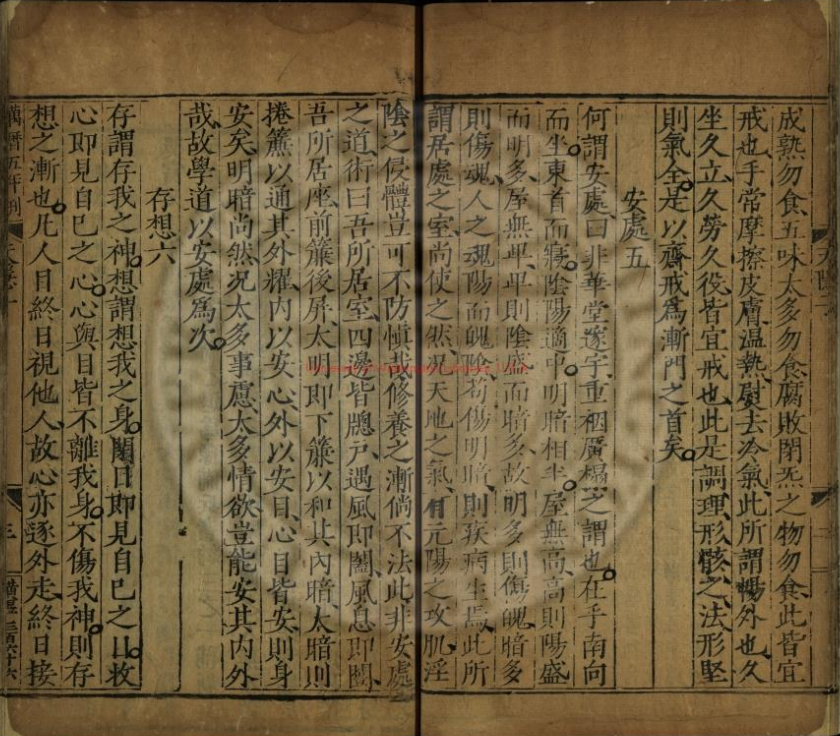 成熟勿食五味太多勿食腐敗閉炁之物勿食此皆宜
戒也手常摩擦皮膚溫熱熨去冷氣此所謂暢外也久
坐久立久勞久役皆宜戒也此是調理形骸之法形堅
則氣全是以齋戒爲漸門之首矣
安處五
何謂安處曰非華堂邃宇重裀廣榻之謂也在乎南向
而坐東首而寢陰陽適中明暗相半屋無高高則陽盛
而明多屋無卑卑則陰盛而暗多故明多則傷魄暗多
則傷魂人之魂陽而魄陰苟傷明暗則疾病生焉此所
謂居處之室尚使之然况天地之氣有元陽之攻肌淫
陰之侵體豈可不防愼哉修養之漸倘不法此非安處
之道術曰吾所居室四邊皆牕戶遇風即闔風息即闢
吾所居座前簾後屏太明即下簾以和其內暗太暗則
捲簾以通其外耀內以安心外以安目心目皆安則身
安矣明暗尚然况太多事慮太多情欲豈能安其內外
哉故學道以安處爲次
存想六
存謂存我之神想謂想我之身閉目即見自己之目收
心即見自己之心心與目皆不離我身不傷我神則存
想之漸也凡人目終日視他人故心亦逐外走終日接
萬曆五年刊
三